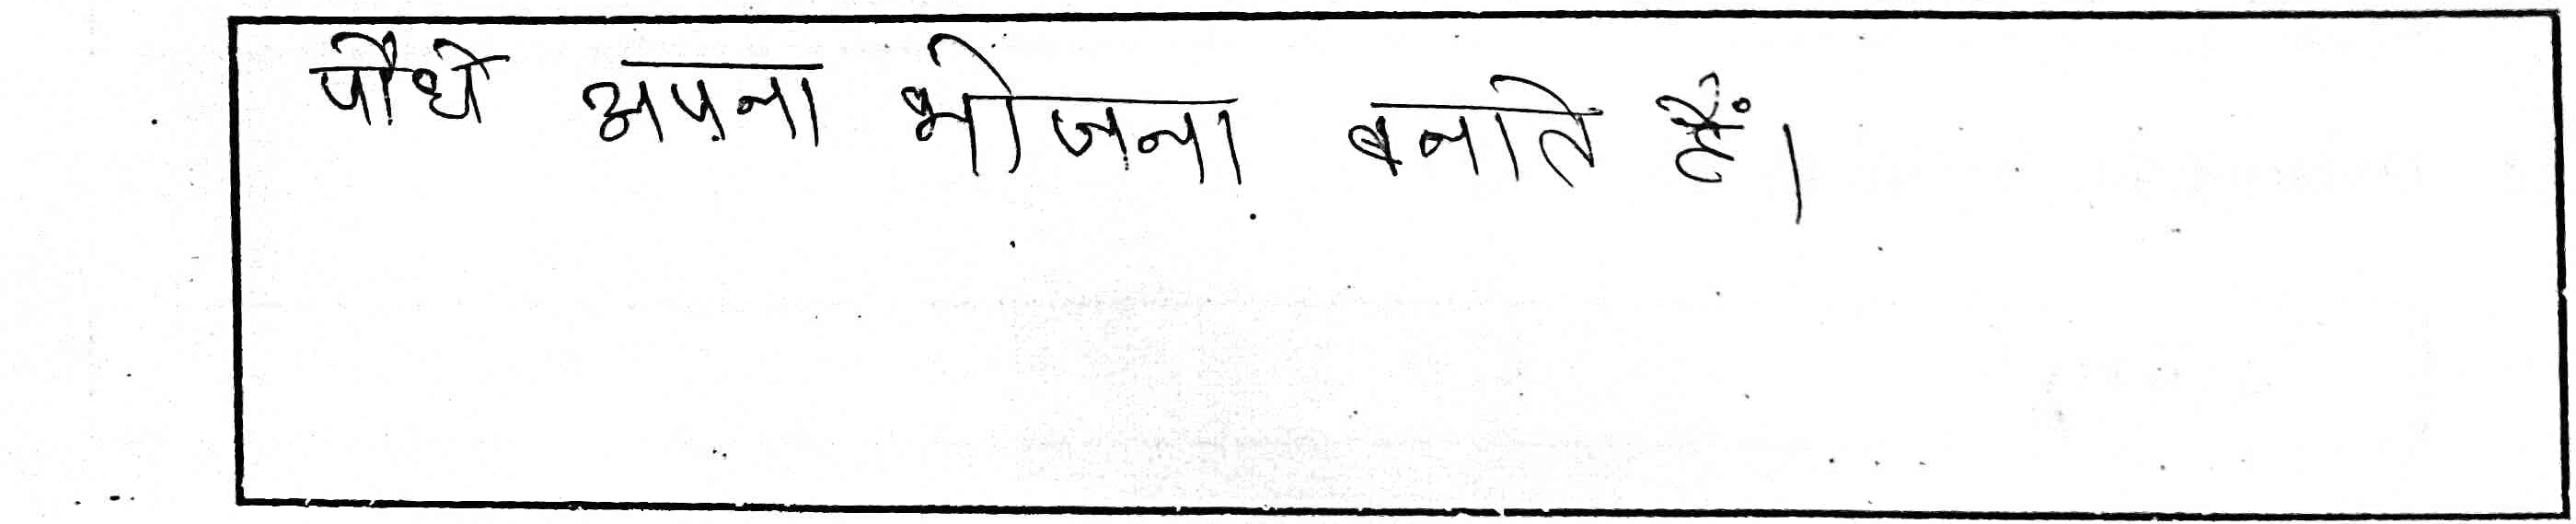 पौधे अपना भोजना बनाते हैं।